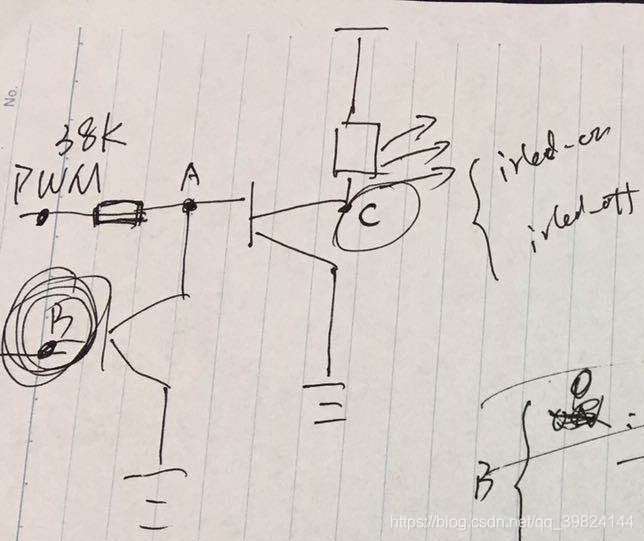 No.
38K
PWM
A
C
irled-on
irled_off
B
0
B
:
https://blog.csdn.net/qq_39824144